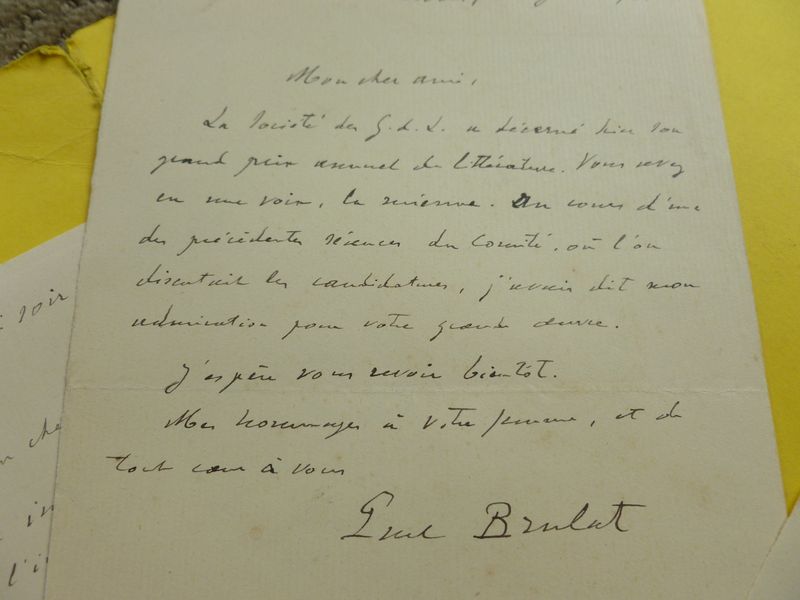 Mon cher ami,
La Société des G. d. L. a décerné hier son
grand prix annuel de littérature. Vous avez
eu une voix, la mienne. Au cours d'une
des précédentes séances du Comité, où l'on
discutait les candidatures, j'avais dit mon
admiration pour votre grande œuvre.
J'espère vous revoir bientôt.
Mes hommages à votre femme, et de
tout cœur à vous
Paul Brulat
soir
l'i